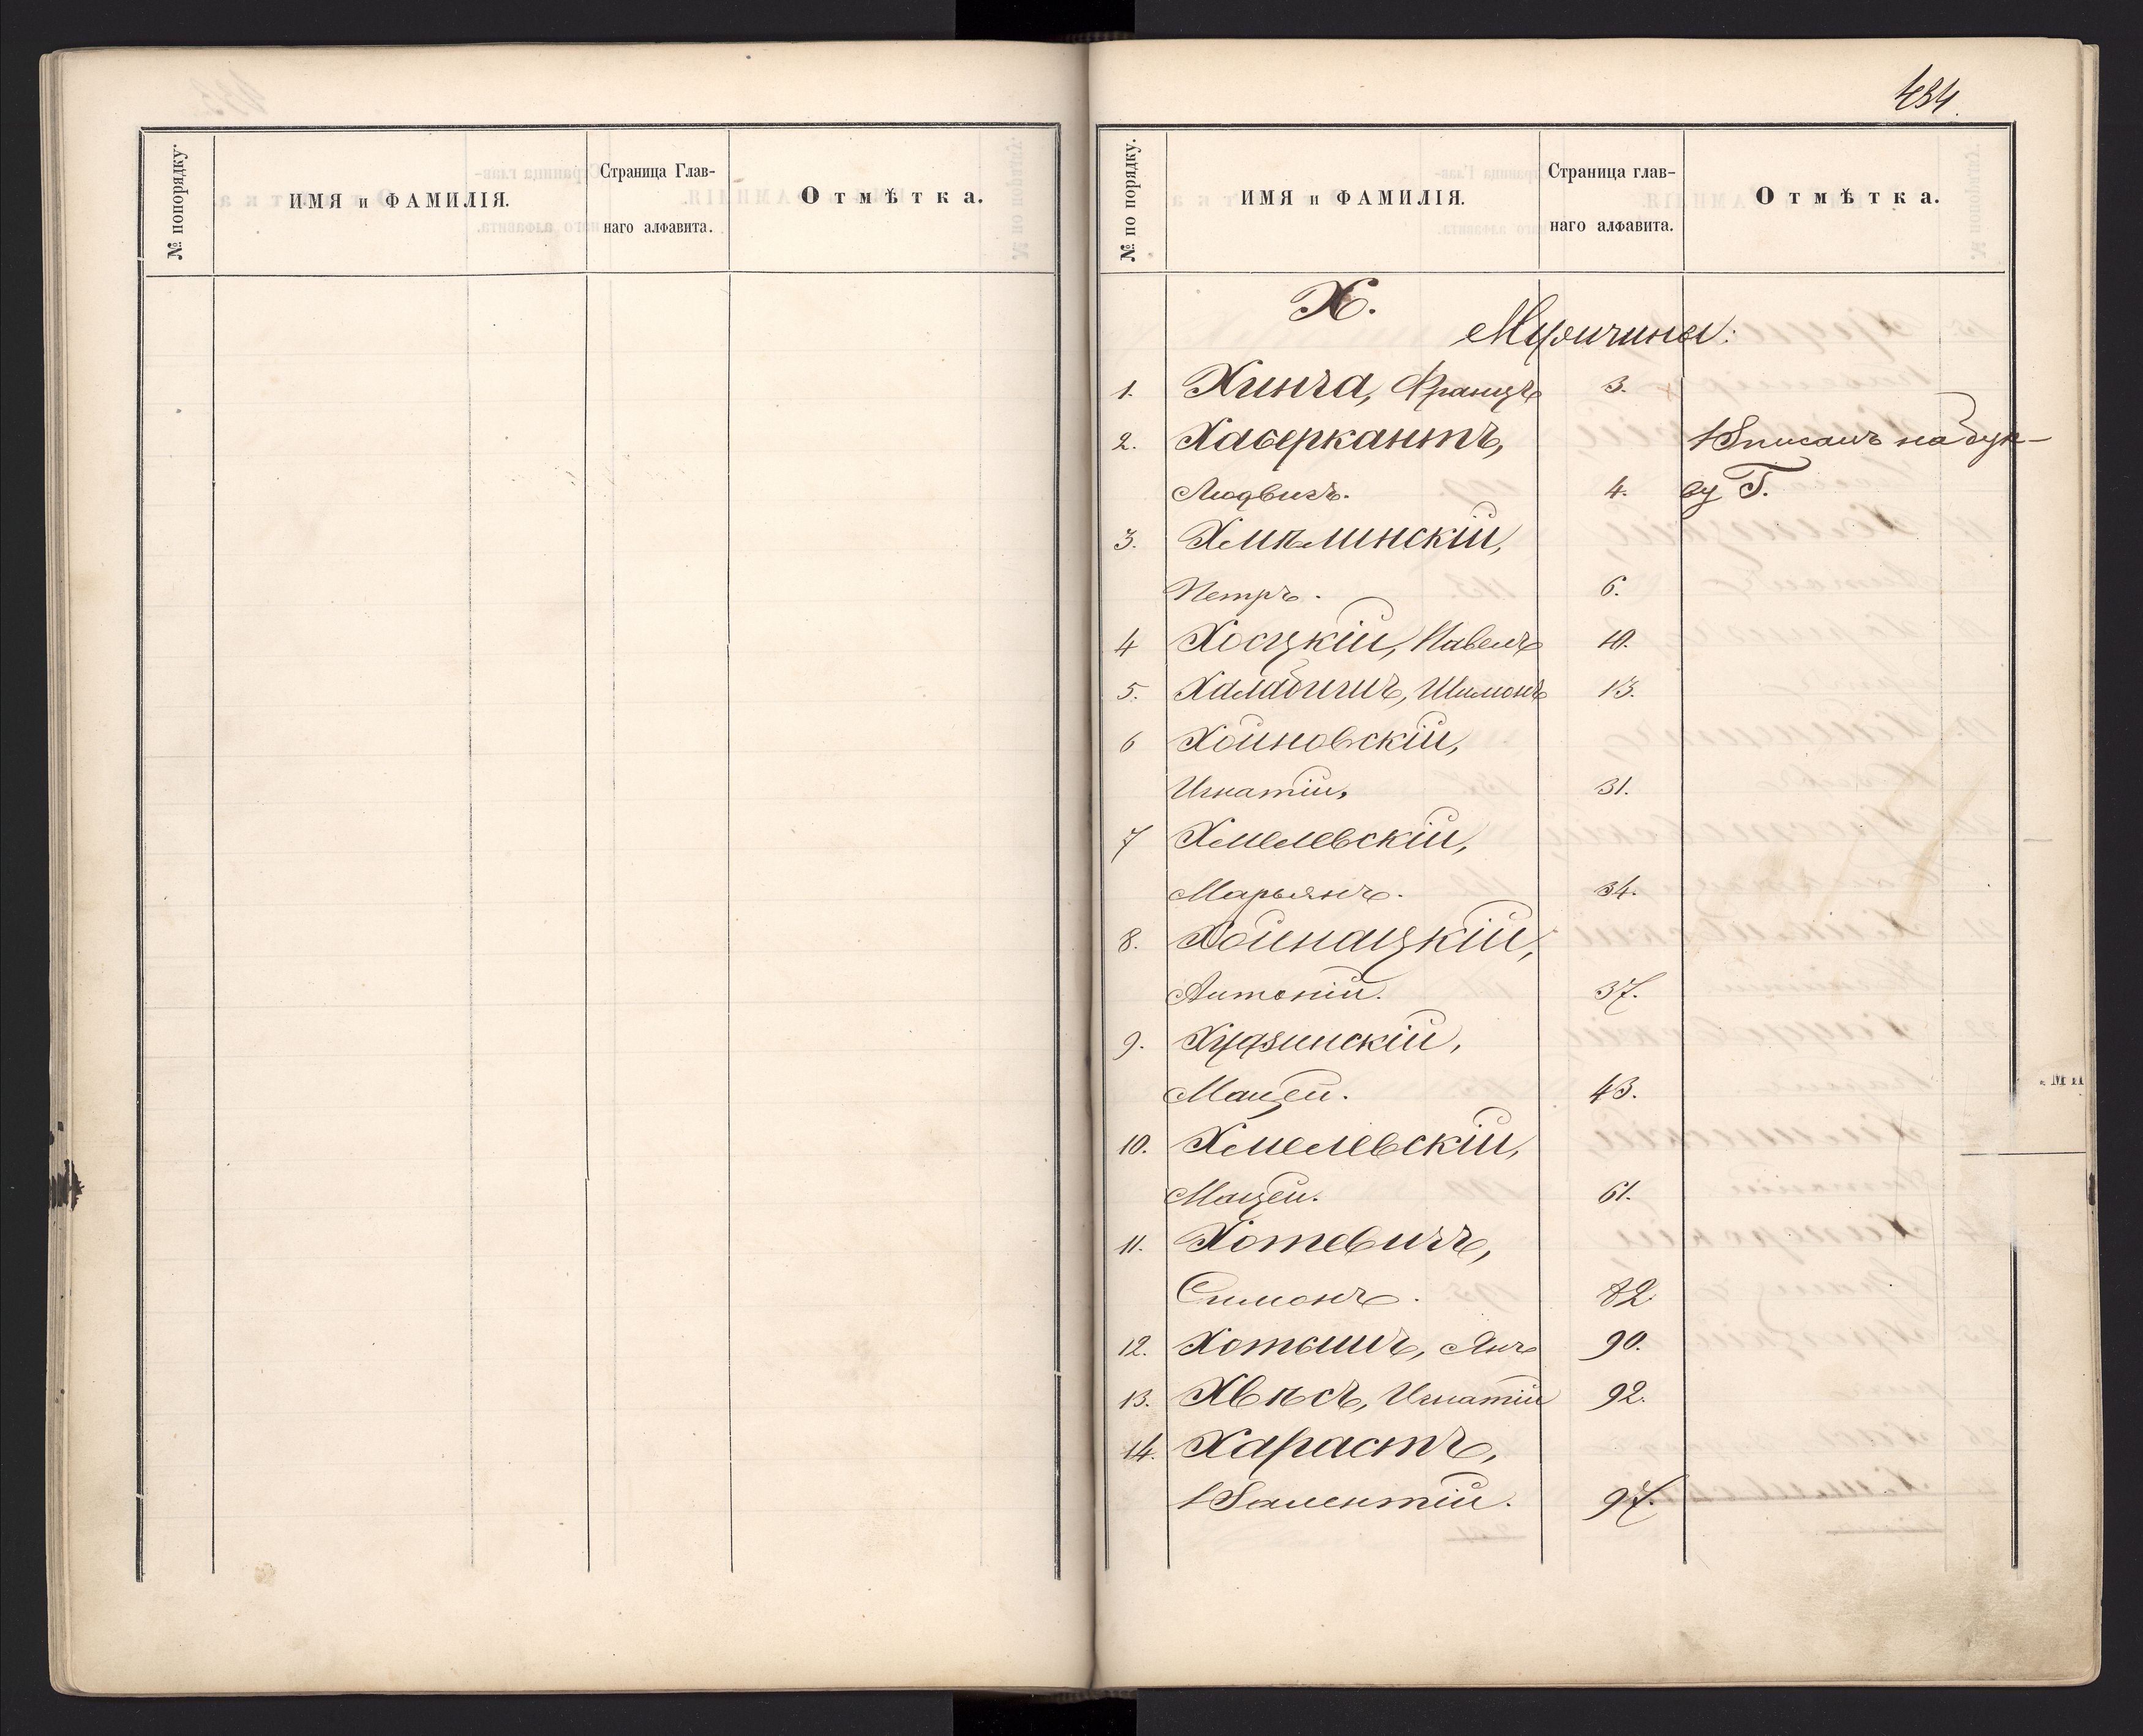 № попорядку.
ИМЯ и ФАМИЛІЯ.
Страница Глав-
наго алфавита.
Отмѣтка.
434.
№ по порядку.
ИМЯ и ФАМИЛІЯ.
Страница глав-
наго алфавита.
Отмѣтка.
Х.
Мужчины:
1. Хинча, Францъ 3.
2. Хаберкантъ, Вписанъ на бук-
Людвигъ. 4. ву Г.
3. Хмѣлинскій,
Петръ. 6.
4 Хосцкій, Павелъ 10.
5. Халабишъ, Шимонъ 13.
6 Хойновскій,
Игнатій, 31.
7 Хмелевскій,
Марьянъ. 34.
8. Хойнацкій,
Антоній. 37.
9. Худзинскій,
Мацей. 43.
10. Хмелевскій,
Мацей. 61.
11. Хотевичъ,
Симонъ. 82
12. Хотышъ, Янъ 90.
13. Хвѣсъ, Игнатій 92.
14. Харастъ,
Валентій. 97.